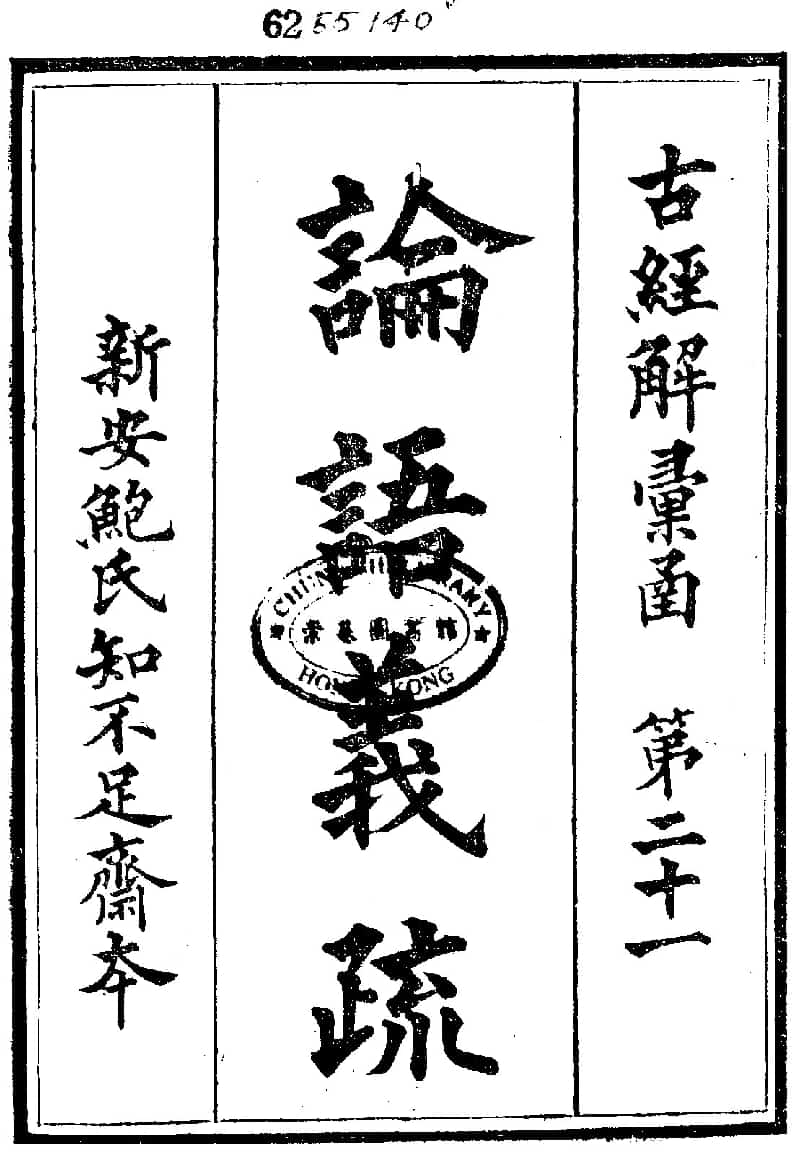 62 55140
古經解彙函 第二十一
論語義疏
新安鮑氏知不足齋本
崇基圖書館
HONG KONG